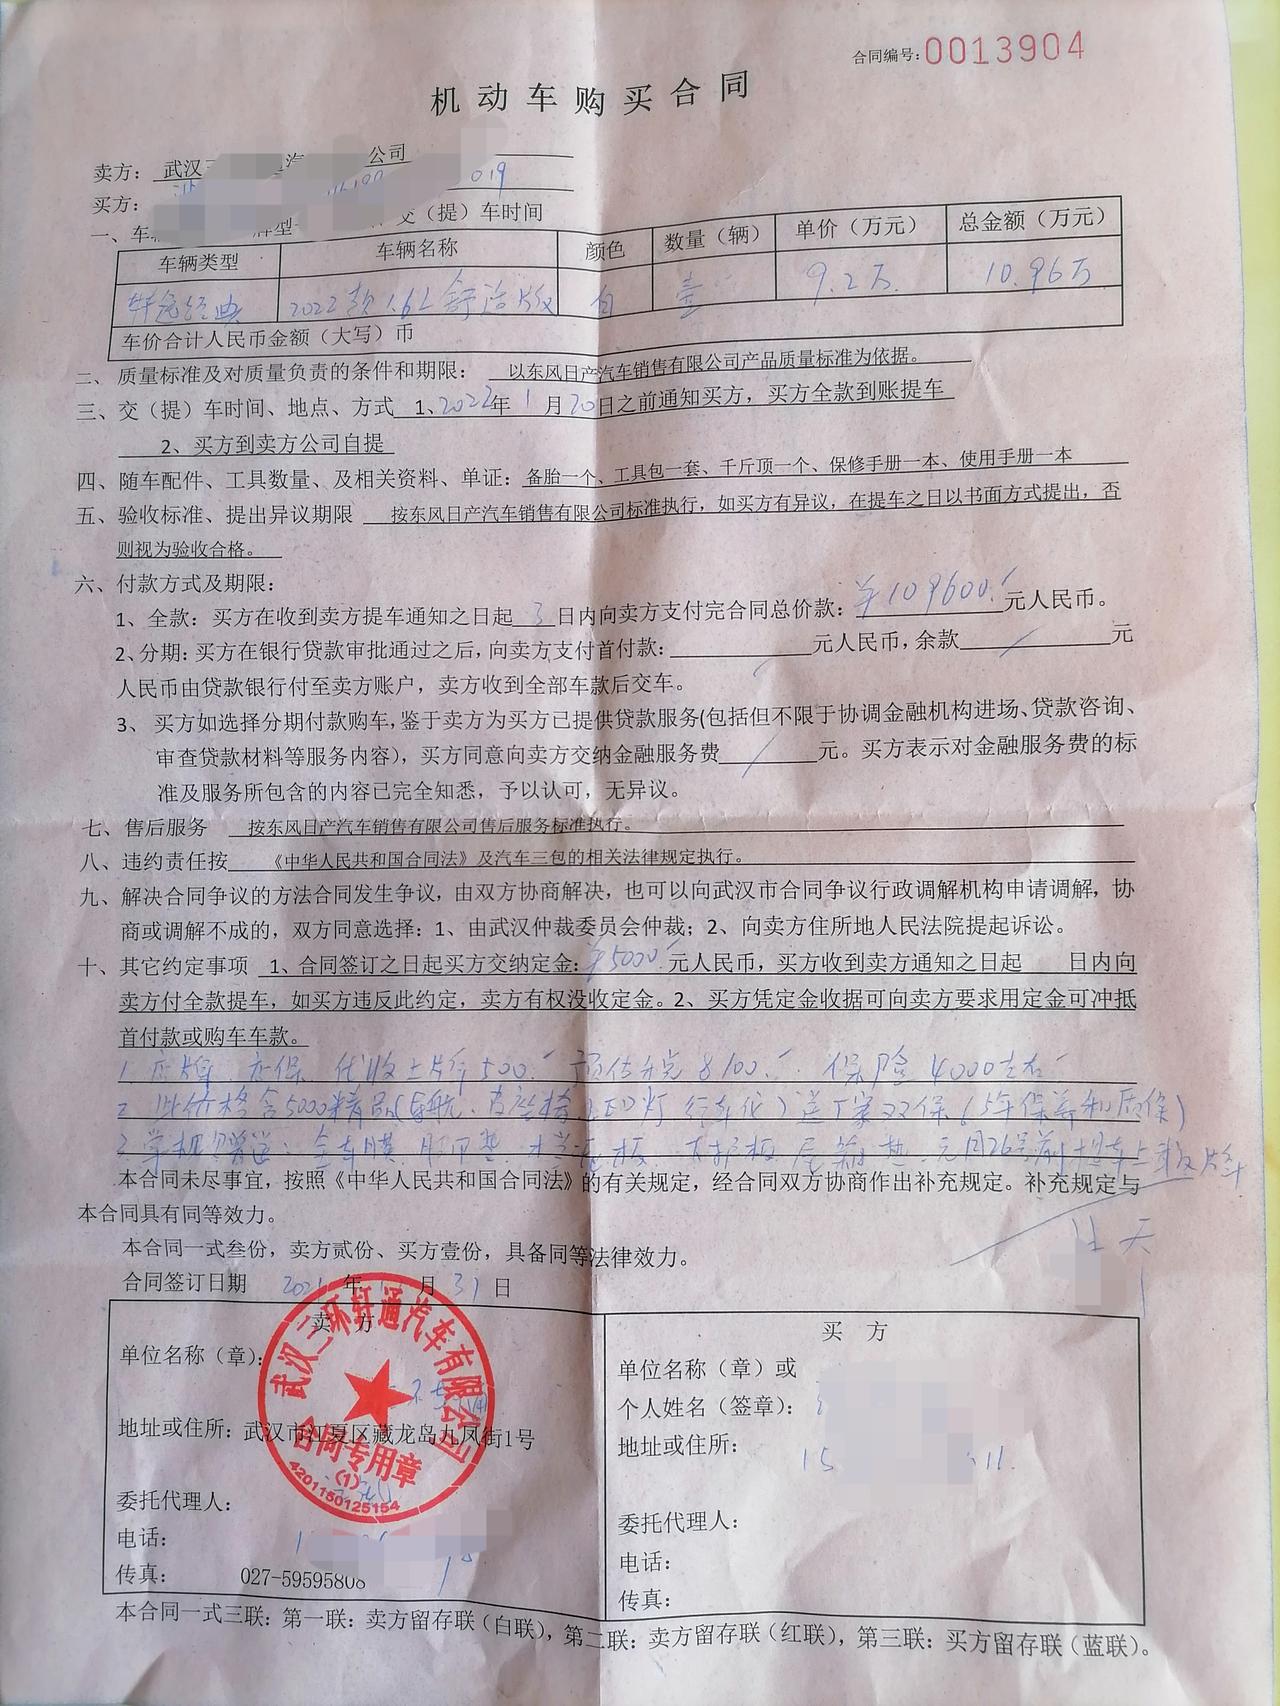 合同编号：0013904
机动车购买合同
卖方：武汉三 汽 公司
买方： 019
一、车 牌型 交（提）车时间
车辆类型 车辆名称 颜色 数量（辆） 单价（万元） 总金额（万元）
轩逸经典 2022款1.6L舒适版 白 壹 9.2万 10.96万
车价合计人民币金额（大写）币
二、质量标准及对质量负责的条件和期限： 以东风日产汽车销售有限公司产品质量标准为依据。
三、交（提）车时间、地点、方式 1、2022年1月20日之前通知买方，买方全款到账提车
2、买方到卖方公司自提
四、随车配件、工具数量、及相关资料、单证：备胎一个、工具包一套、千斤顶一个、保修手册一本、使用手册一本
五、验收标准、提出异议期限 按东风日产汽车销售有限公司标准执行，如买方有异议，在提车之日以书面方式提出，否
则视为验收合格。
六、付款方式及期限：
1、全款：买方在收到卖方提车通知之日起 3 日内向卖方支付完合同总价款：￥109600. 元人民币。
2、分期：买方在银行贷款审批通过之后，向卖方支付首付款： 元人民币，余款 / 元
人民币由贷款银行付至卖方账户，卖方收到全部车款后交车。
3、 买方如选择分期付款购车，鉴于卖方为买方已提供贷款服务(包括但不限于协调金融机构进场、贷款咨询、
审查贷款材料等服务内容)，买方同意向卖方交纳金融服务费 / 元。买方表示对金融服务费的标
准及服务所包含的内容已完全知悉，予以认可，无异议。
七、售后服务 按东风日产汽车销售有限公司售后服务标准执行。
八、违约责任按 《中华人民共和国合同法》及汽车三包的相关法律规定执行。
九、解决合同争议的方法合同发生争议，由双方协商解决，也可以向武汉市合同争议行政调解机构申请调解，协
商或调解不成的，双方同意选择：1、由武汉仲裁委员会仲裁；2、向卖方住所地人民法院提起诉讼。
十、其它约定事项 1、合同签订之日起买方交纳定金：￥5000 元人民币，买方收到卖方通知之日起 日内向
卖方付全款提车，如买方违反此约定，卖方有权没收定金。2、买方凭定金收据可向卖方要求用定金可冲抵
首付款或购车车款。
1. 店牌 店保 代收上牌500. 预估购税8100. 保险4000左右
2. 此价格含5000精品(导航、真座椅 LED灯 行车仪)送厂家双保(5年保养和质保)
赠送：全车膜 脚垫 底板 护板 尾箱垫 元月26号前提车上牌
本合同未尽事宜，按照《中华人民共和国合同法》的有关规定，经合同双方协商作出补充规定。补充规定与
本合同具有同等效力。
本合同一式叁份，卖方贰份、买方壹份，具备同等法律效力。
合同签订日期 2021年 月31日
卖 方
单位名称（章）：
地址或住所：武汉市江夏区藏龙岛九凤街1号
委托代理人：
电话：
传真： 027-59595808
武汉三环轩通汽车有限公司
合同专用章
(1)
4201150125154
买 方
单位名称（章）或
个人姓名（签章）：
地址或住所：
15 11.
委托代理人：
电话：
传真：
本合同一式三联：第一联：卖方留存联（白联），第二联：卖方留存联（红联），第三联：买方留存联（蓝联）。